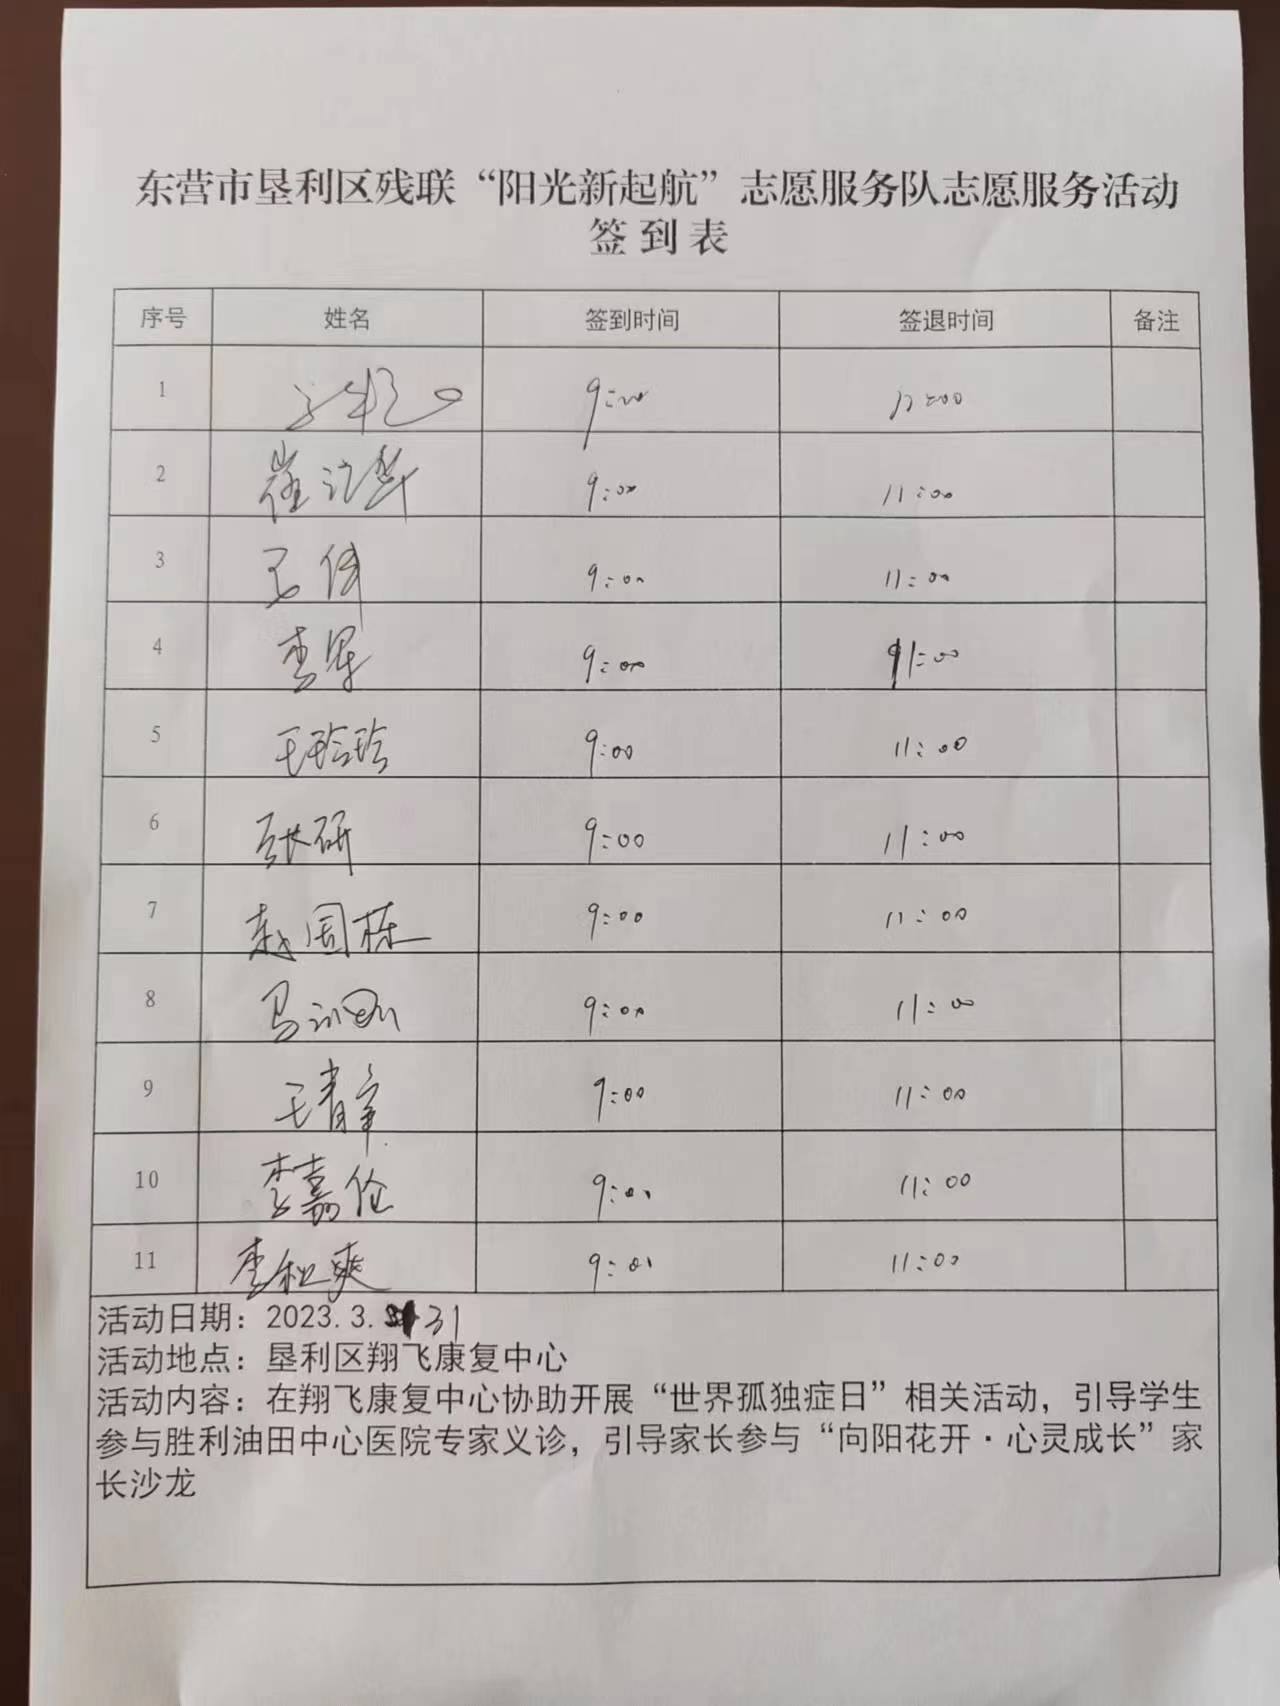 东营市垦利区残联“阳光新起航”志愿服务队志愿服务活动
签到表
序号 姓名 签到时间 签退时间 备注
1 9:00
2 崔 9:00 11:00
3 9:00 11:00
4 李军 9:00 11:00
5 王玲玲 9:00 11:00
6 张研 9:00 11:00
7 赵国栋 9:00 11:00
8 马 9:00 11:00
9 王青章 9:00 11:00
10 李嘉伦 9:01 11:00
11 李爽 9:01 11:00
活动日期：2023.3.31
活动地点：垦利区翔飞康复中心
活动内容：在翔飞康复中心协助开展“世界孤独症日”相关活动，引导学生
参与胜利油田中心医院专家义诊，引导家长参与“向阳花开·心灵成长”家
长沙龙